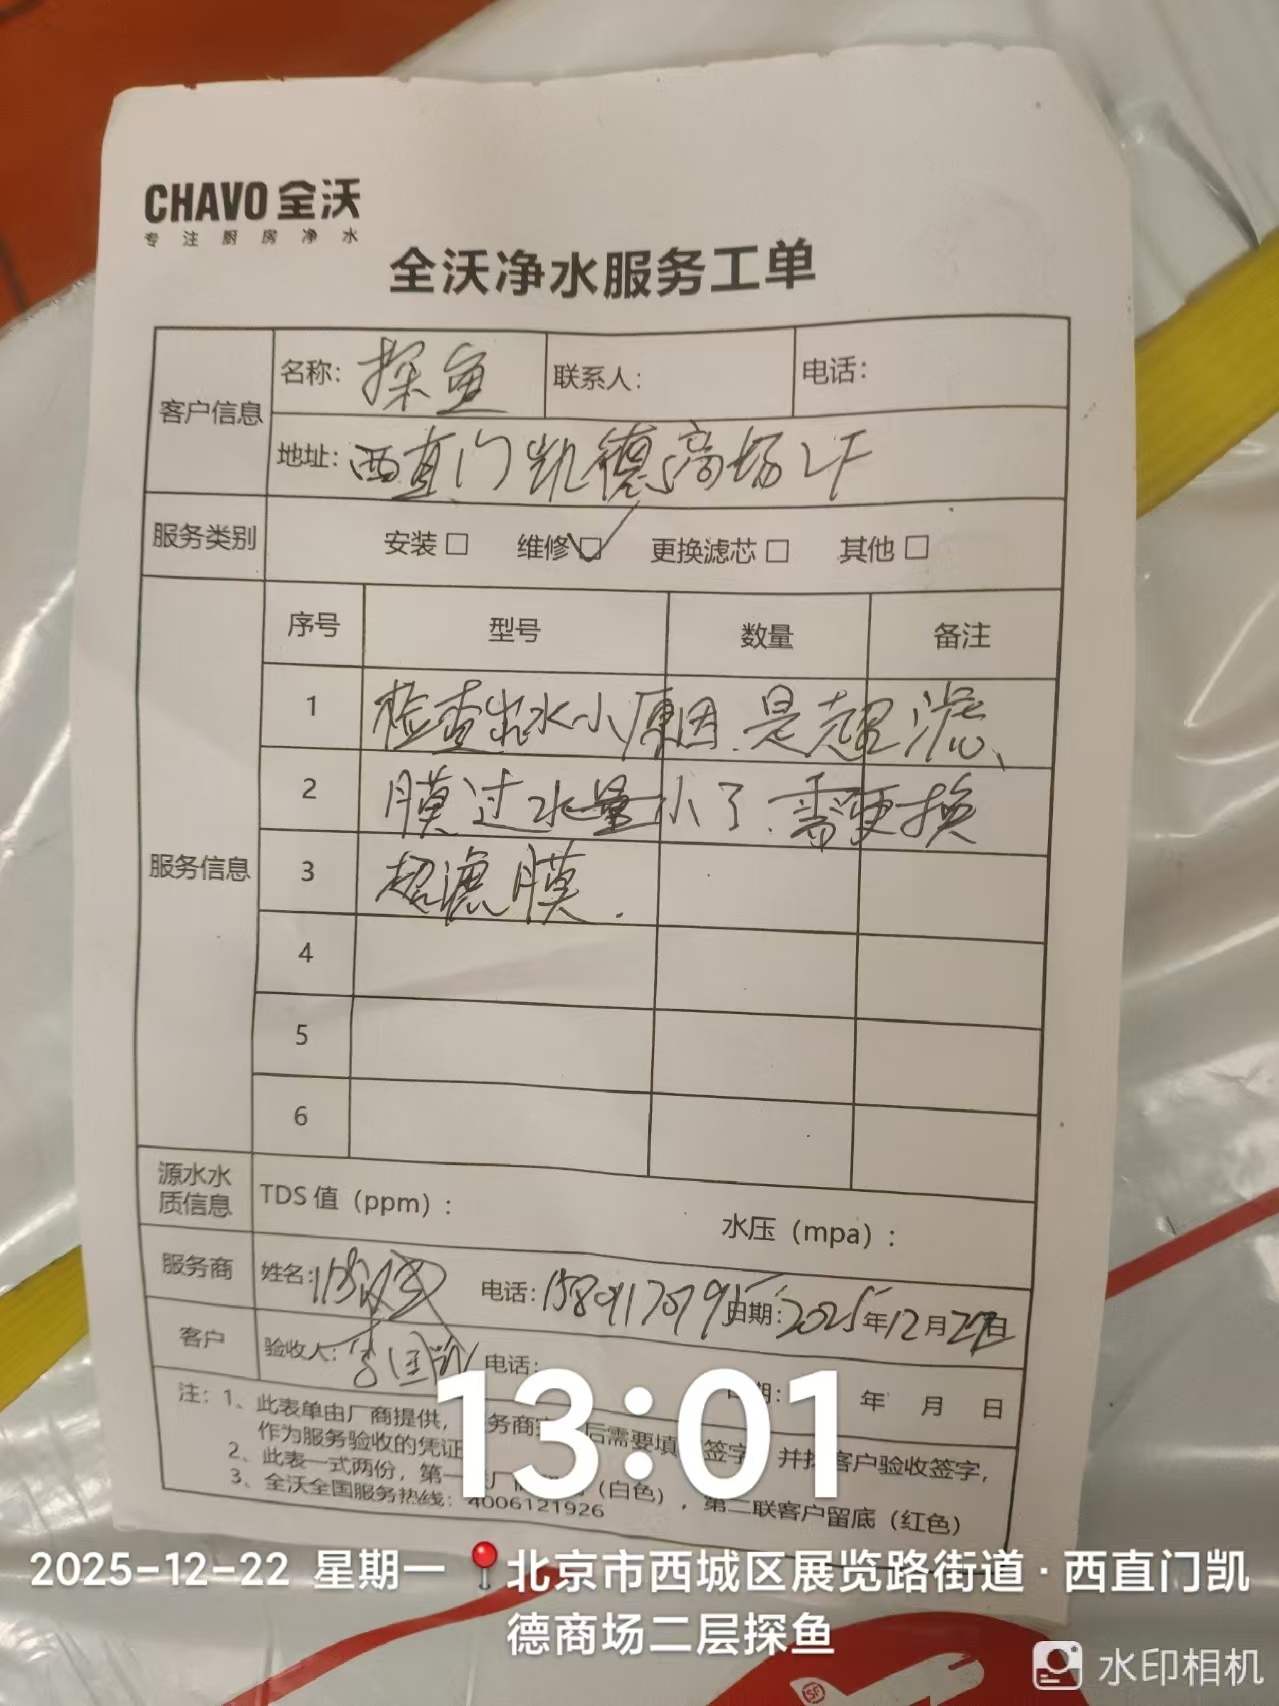 CHAVO 全沃
专注厨房净水
全沃净水服务工单
客户信息 名称: 探鱼 联系人: 电话:
地址: 西直门凯德商场LF
服务类别 安装□ 维修☑ 更换滤芯□ 其他□
服务信息 序号 型号 数量 备注
1 检查出水小原因.是超滤、
2 膜过水量小了.需更换
3 超滤膜.
4
5
6
源水水质信息 TDS值（ppm）: 水压（mpa）:
服务商 姓名: 电话: 日期: 2025年12月 日
客户 验收人: 李国 电话: 日期: 年 月 日
注: 1、此表单由厂商提供, 务商 后需要填 签字, 并 客户验收签字,
作为服务验收的凭证
2、此表一式两份, 第一 厂 （白色）, 第二联客户留底（红色）
3、全沃全国服务热线: 4006121926
13:01
2025-12-22 星期一 北京市西城区展览路街道·西直门凯
德商场二层探鱼
水印相机